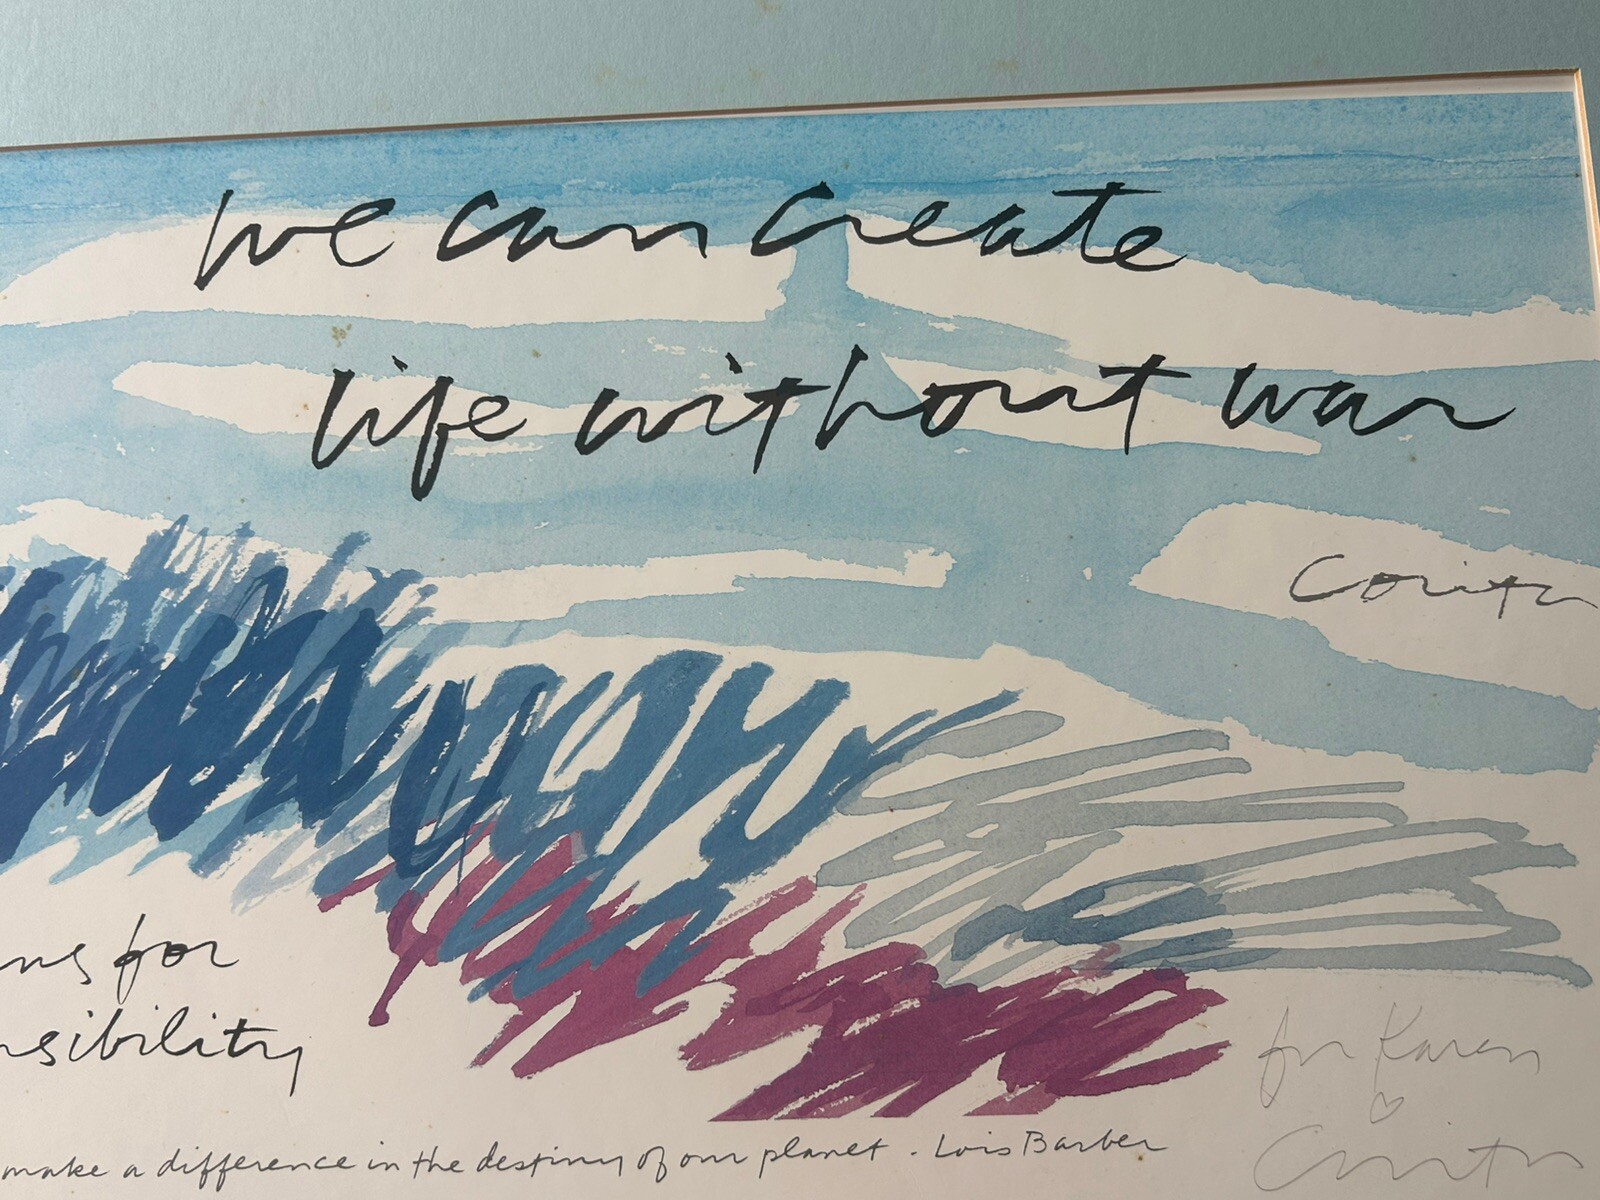 we can create
life without war
Corita
ns for
nsibility
for Karen
make a difference in the destiny of our planet . Lois Barber
Corita